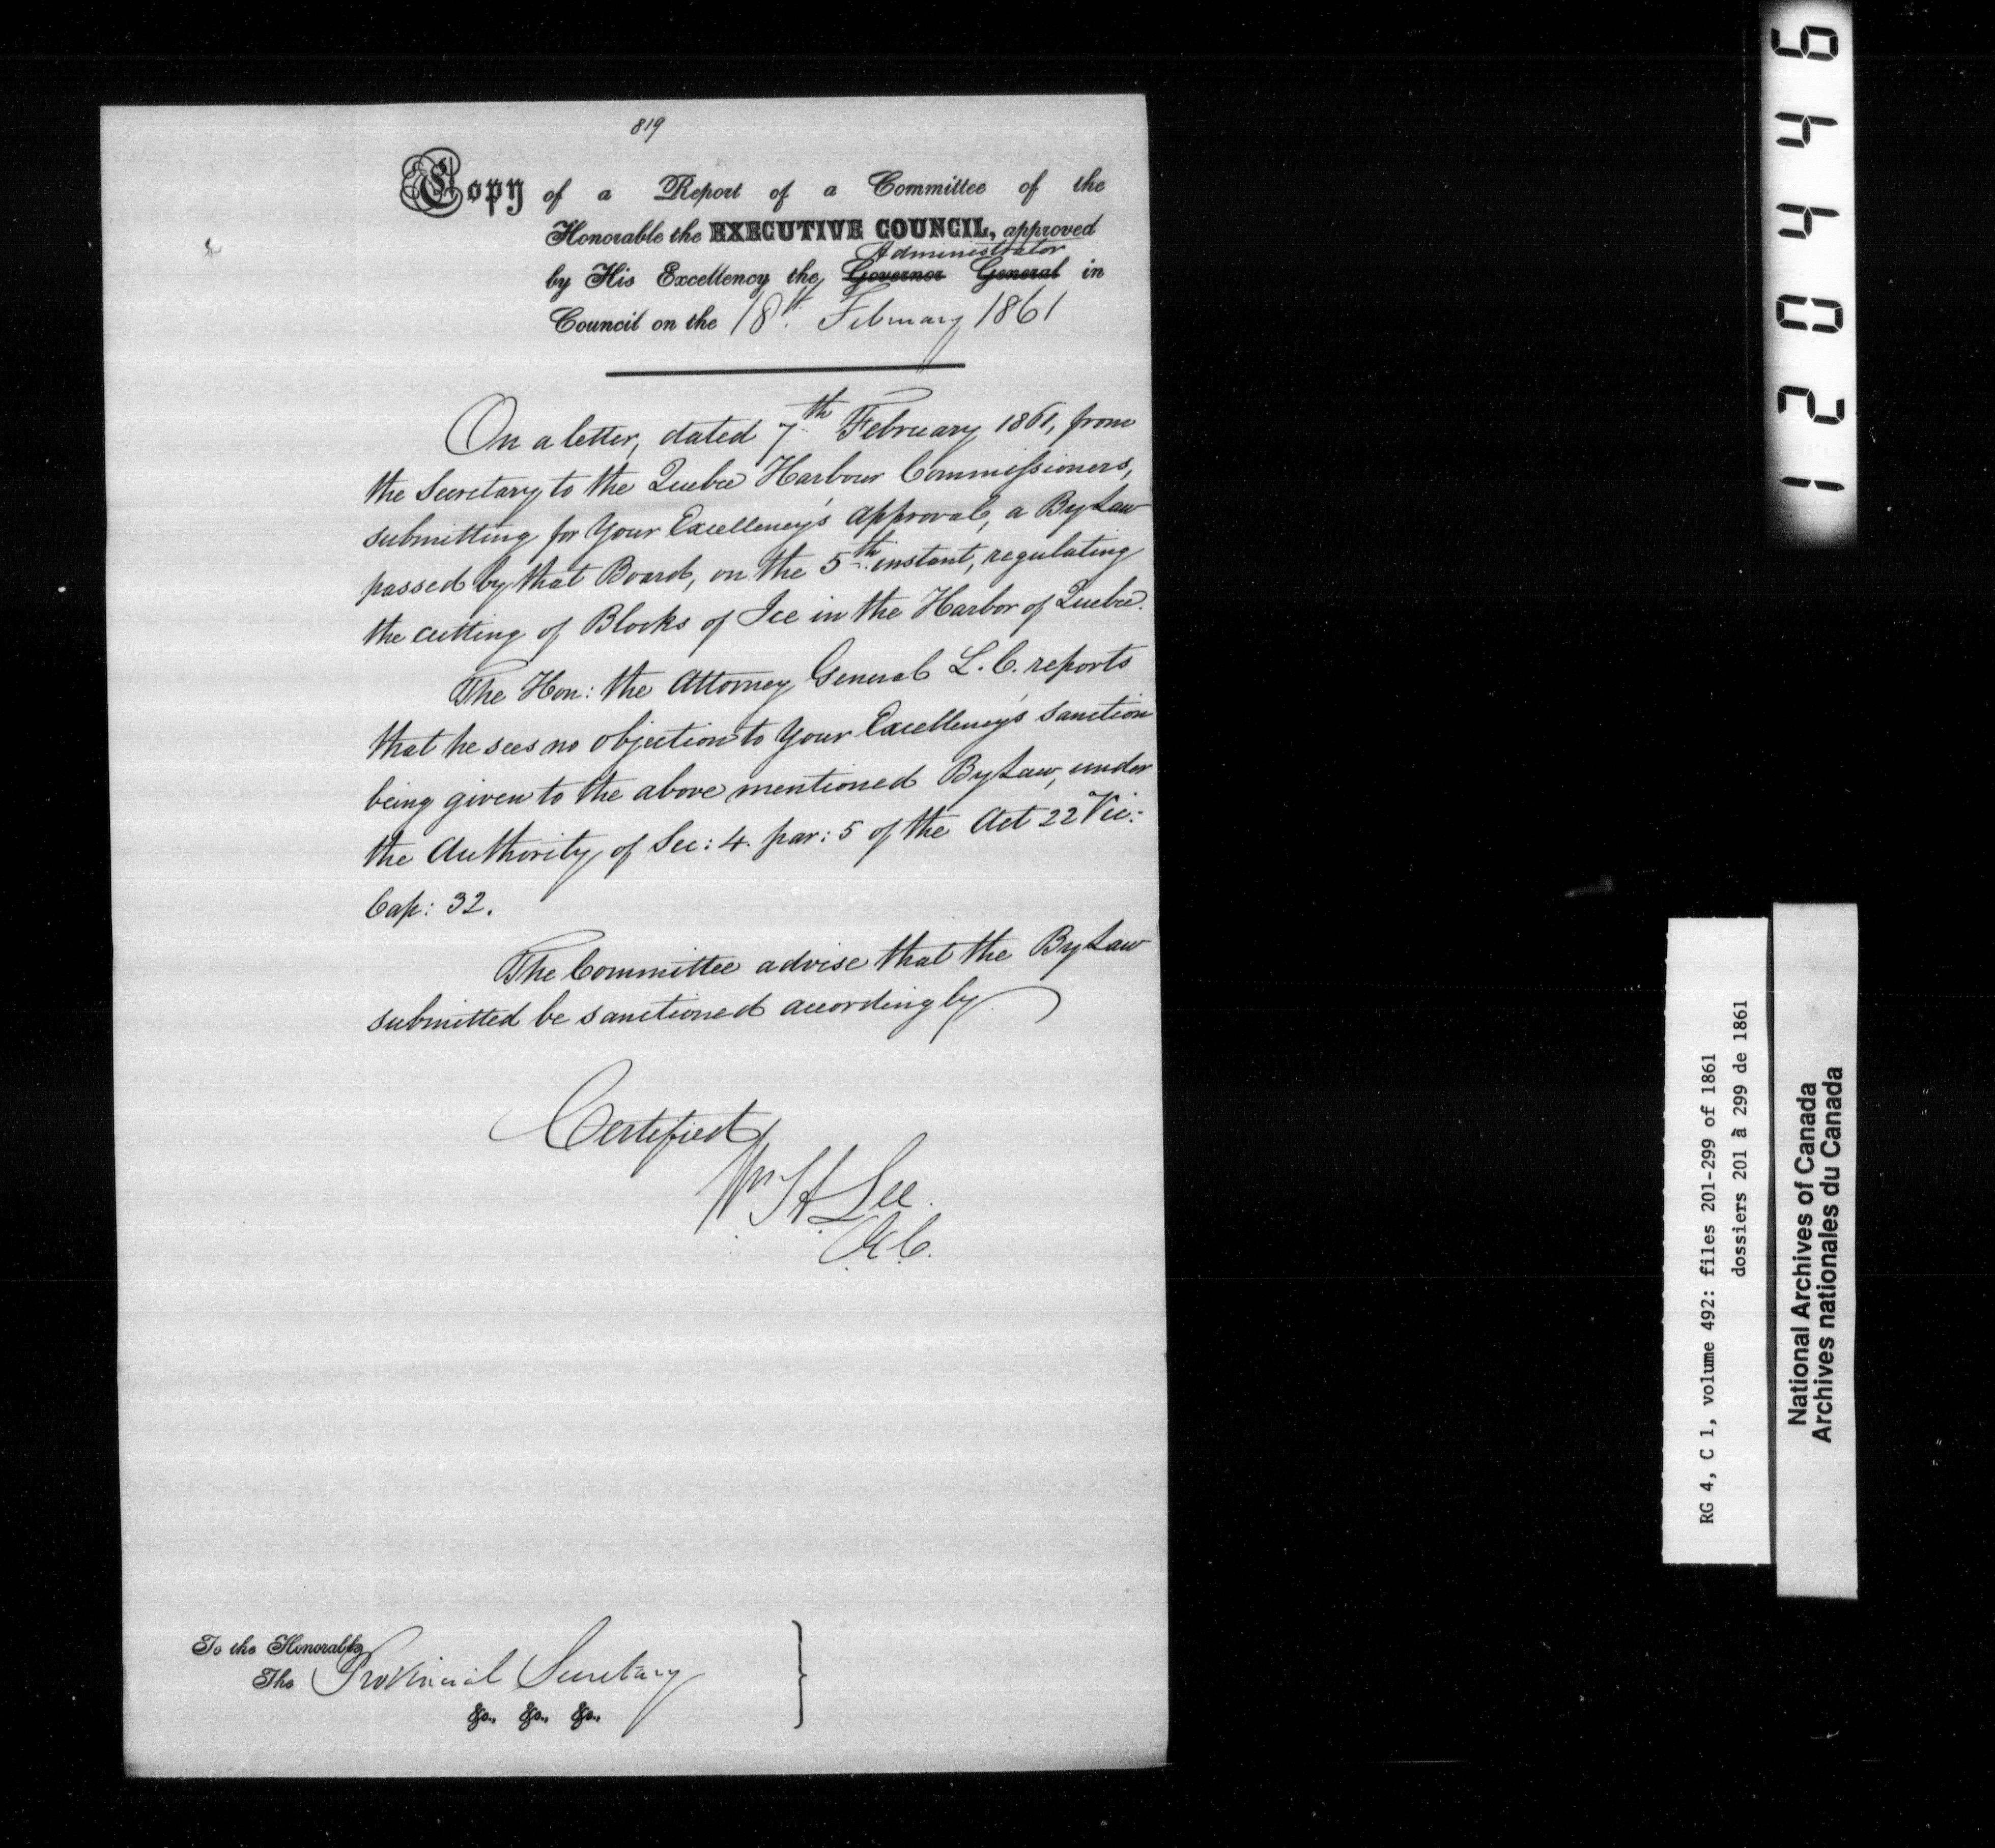 819
Copy of a Report of a Committee of the
Honorable the EXECUTIVE COUNCIL, approved
Administrator
by His Excellency the Governor General in
Council on the 18th. February 1861
On a letter, dated 7th February 1861, from
the Secretary to the Quebec Harbour Commissioners,
submitting for Your Excellency's approval, a By Law
passed by that Board, on the 5th instant, regulating
the cutting of Blocks of Ice in the Harbor of Quebec.
The Hon: the Attorney General L.C. reports
that he sees no objection to Your Excellency's sanction
being given to the above mentioned By Law, under
the Authority of Sec: 4. par: 5 of the Act 22 Vic:
Cap: 32.
The Committee advise that the By Law
submitted be sanctioned accordingly
Certified
Wm H Lee
To the Honorable
The Provincial Secretary
&c., &c., &c.,
120446
RG 4, C 1, volume 492: files 201-299 of 1861
dossiers 201 à 299 de 1861
National Archives of Canada
Archives nationales du Canada